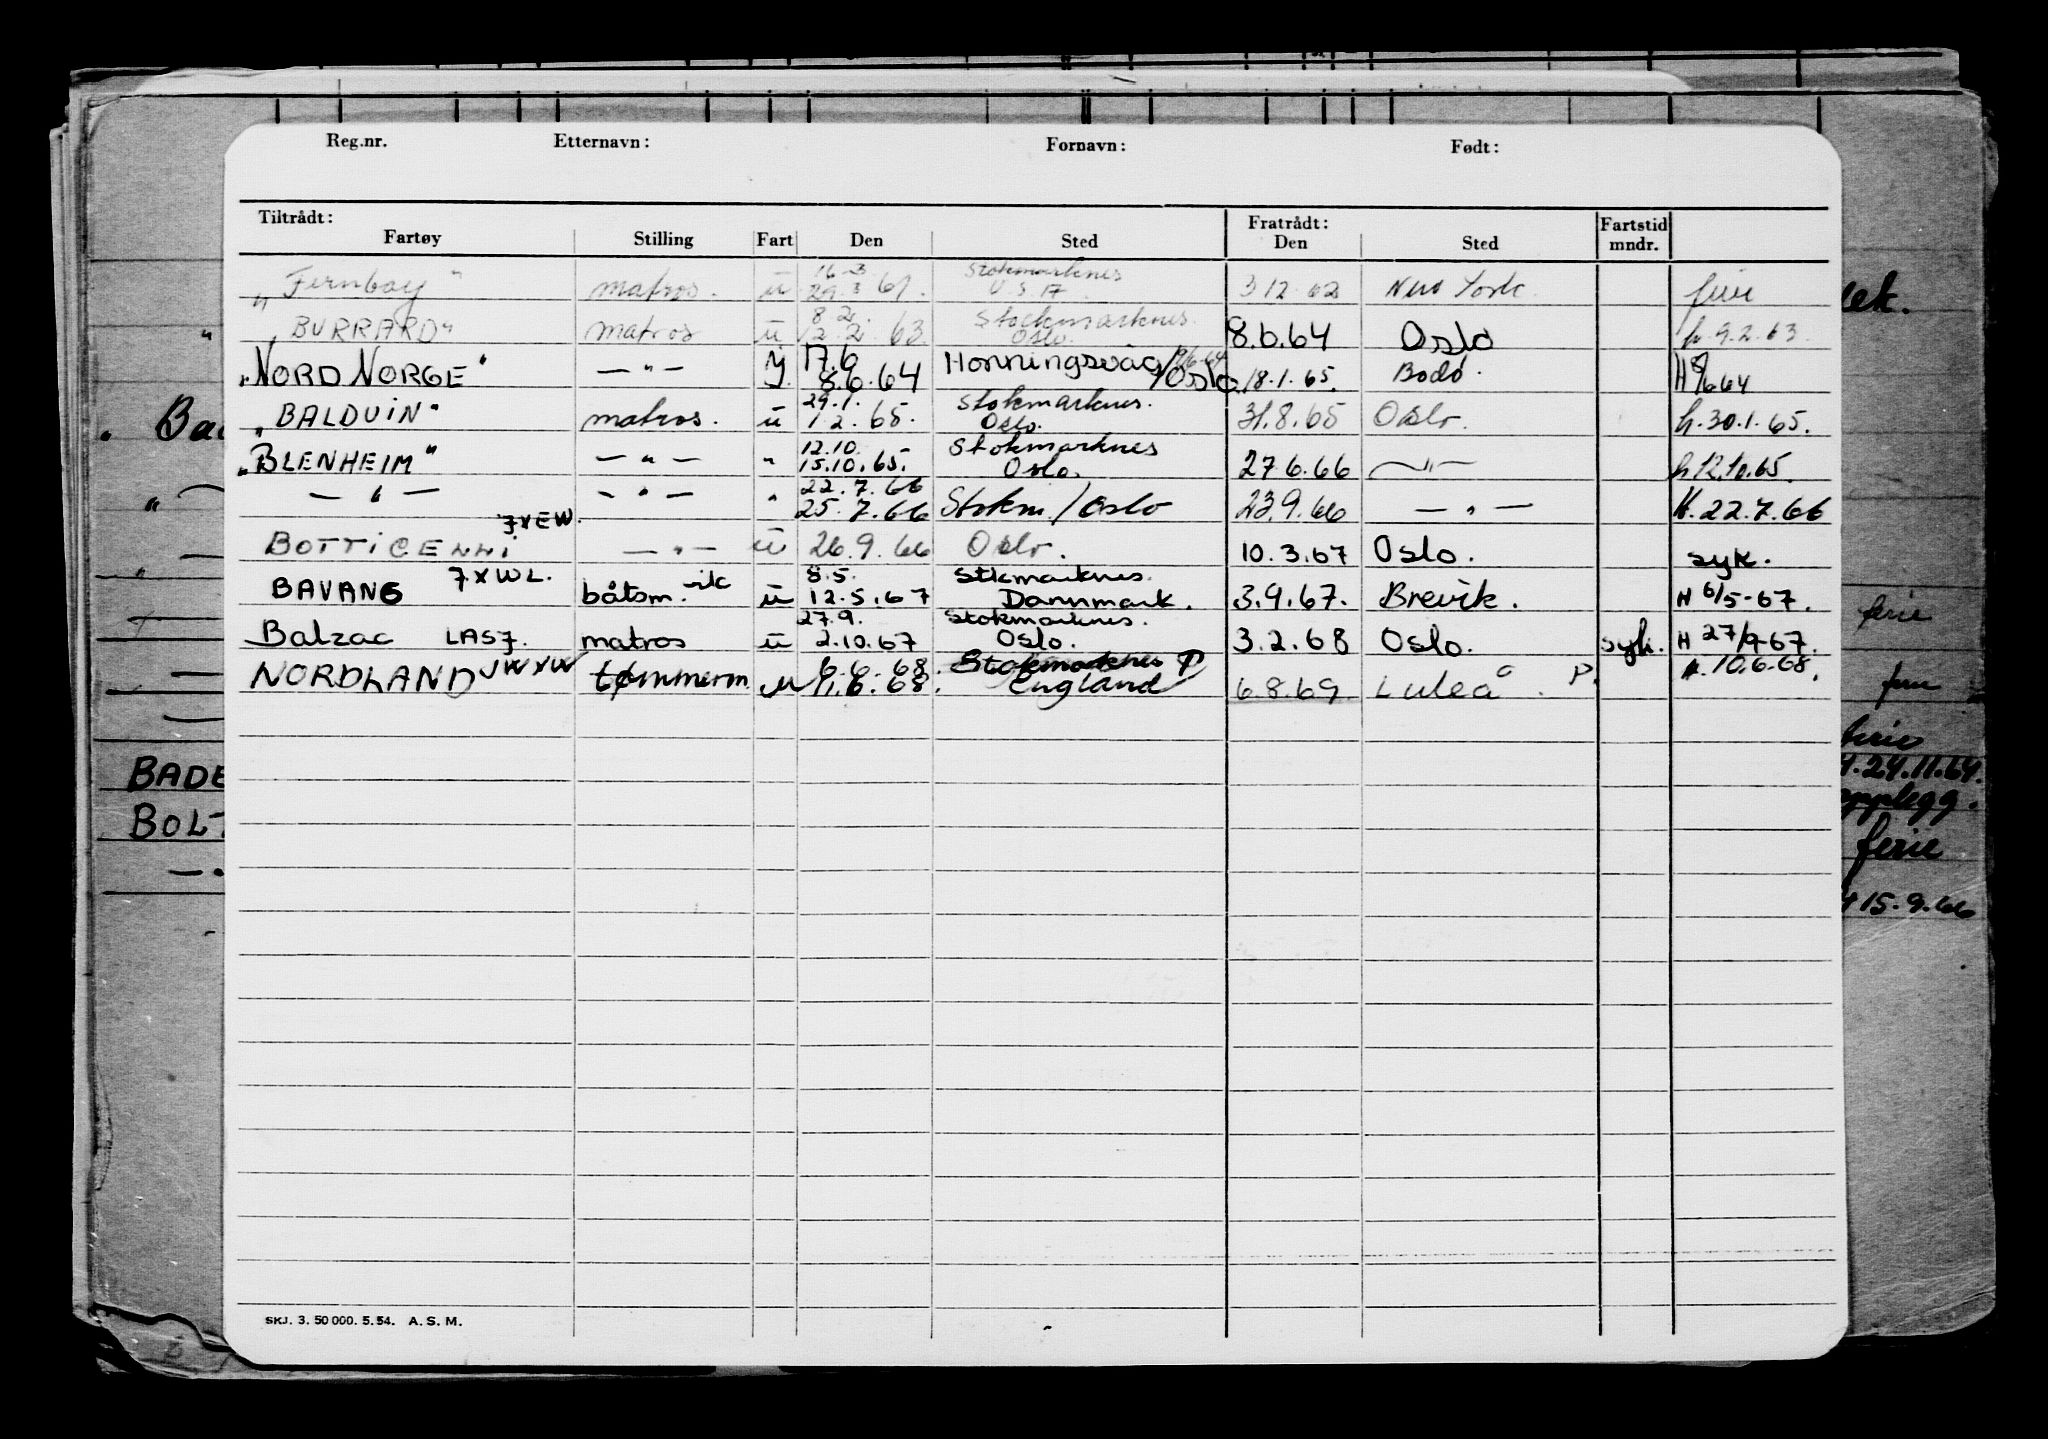 Reg.nr. Etternavn: Fornavn: Født:
Tiltrådt: Fratrådt: Fartstid
Fartøy Stilling Fart Den Sted Den Sted mndr.
16-3 Stokmarknes
„Fernbay" matros. u 29.3 61. U.S.17. 3 12 62 New York ferie
8 2. Stockmarknes.
„BURRARD" matros u 12.2. 63. Oslo. 8.6.64 Oslo h. 9.2.63.
17.6 Honningsvåg
„NORD NORGE" — " — 8.6.64 /Oslo 18.1.65. Bodø. H 8/6 64
29.1. Stokmarknes.
„BALDUIN" matros. u 1 2. 65. Oslo. 31.8.65 Oslo. h.30.1.65.
12.10. Stokmarknes
„BLENHEIM" — " — " 15.10.65. Oslo. 27.6.66 — " — h 12.10.65.
22.7.66
— " — — " — " 25.7.66 Stokm./Oslo 23.9.66 — " — H.22.7.66
7XEW.
BOTTICELLI — " — u 26.9.66 Oslo. 10.3.67 Oslo. syk.
7XWL. 8.5. Stkmarknes.
BAVANG båtsm.-vik u 12.5.67 Dannmark. 3.9.67. Brevik. H 6/5-67.
27.9. Stokmarknes.
Balzac LAS7. matros u 2.10.67 Oslo. 3.2.68 Oslo. syk. H 27/9-67.
6.6.68. Stokmarknes P h.10.6.68.
NORDLAND JWXW tømmerm. u 11.6.68. England 6.8.69. Luleå. P.
SKJ. 3. 50 000. 5.54. A. S. M.
ek.
Ba
ferie
ferie
BADE
ferie
H.24.11.64.
BOL
opplegg.
ferie
H 15.9.66